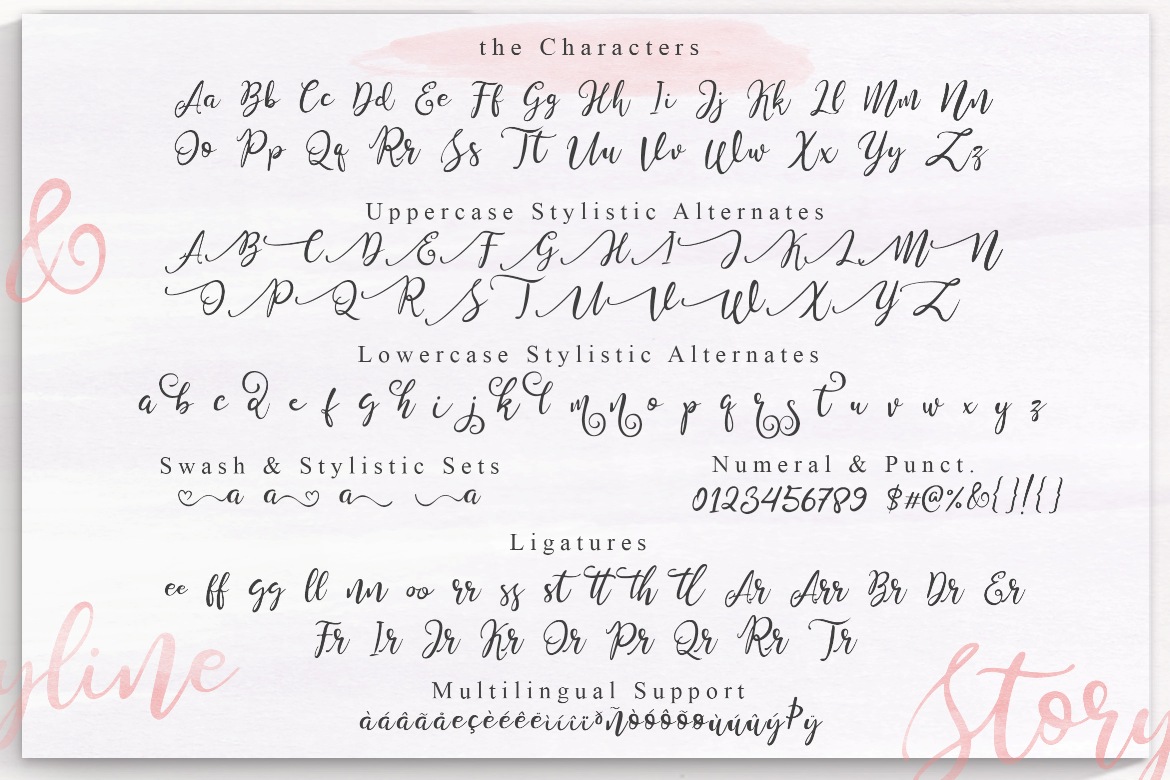 the Characters
Aa Bb Cc Dd Ee Ff Gg Hh Ii Jj Kk Ll Mm Nn
Oo Pp Qq Rr Ss Tt Uu Vv Ww Xx Yy Zz
&
Uppercase Stylistic Alternates
A B C D E F G H I J K L M N
O P Q R S T U V W X Y Z
Lowercase Stylistic Alternates
a b c d e f g h i j k l m n o p q r s t u v w x y z
Swash & Stylistic Sets
a a a a
Numeral & Punct.
0123456789 $#@%&{}!{}
Ligatures
ee ff gg ll nn oo rr ss st tt th tl Ar Arr Br Dr Er
Fr Ir Jr Kr Or Pr Qr Rr Tr
yline
Story
Multilingual Support